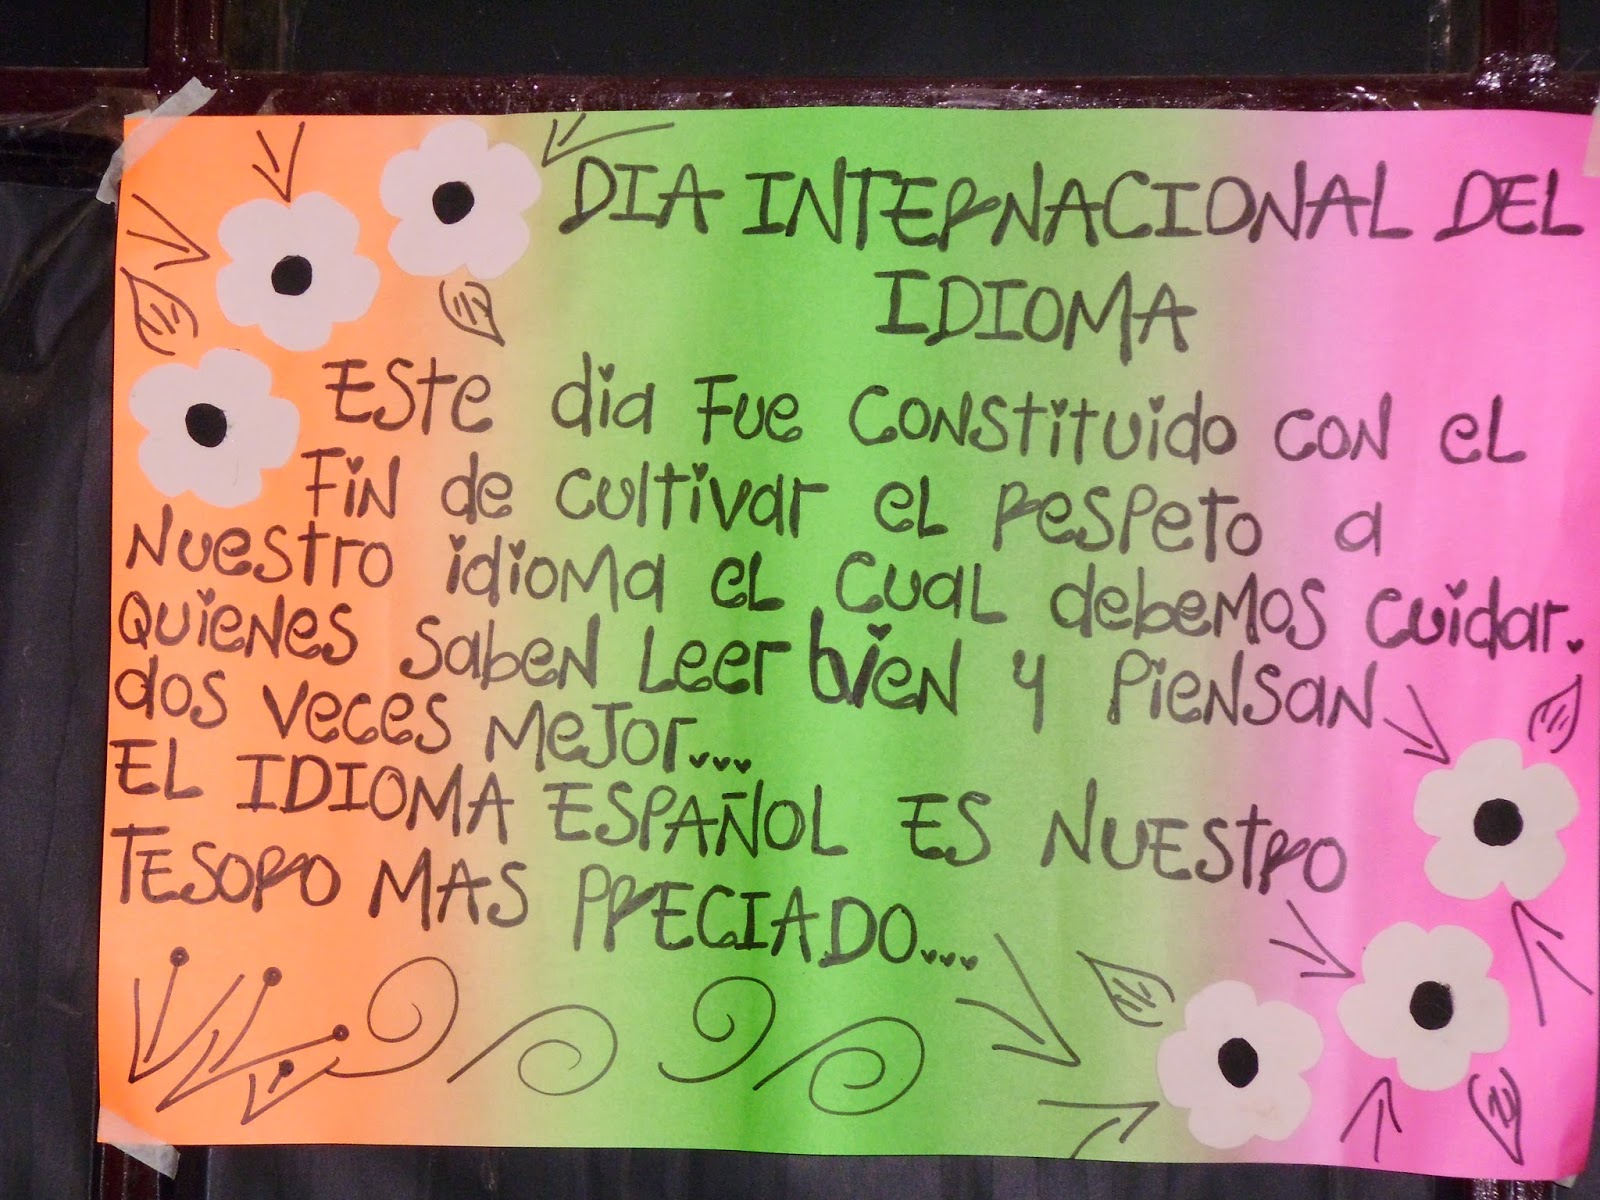 DIA INTERNACIONAL DEL
IDIOMA
Este dia fue constituido con el
fin de cultivar el respeto a
nuestro idioma el cual debemos cuidar.
quienes saben leer bien y piensan
dos veces mejor...
EL IDIOMA ESPAÑOL ES NUESTRO
TESORO MAS PRECIADO...